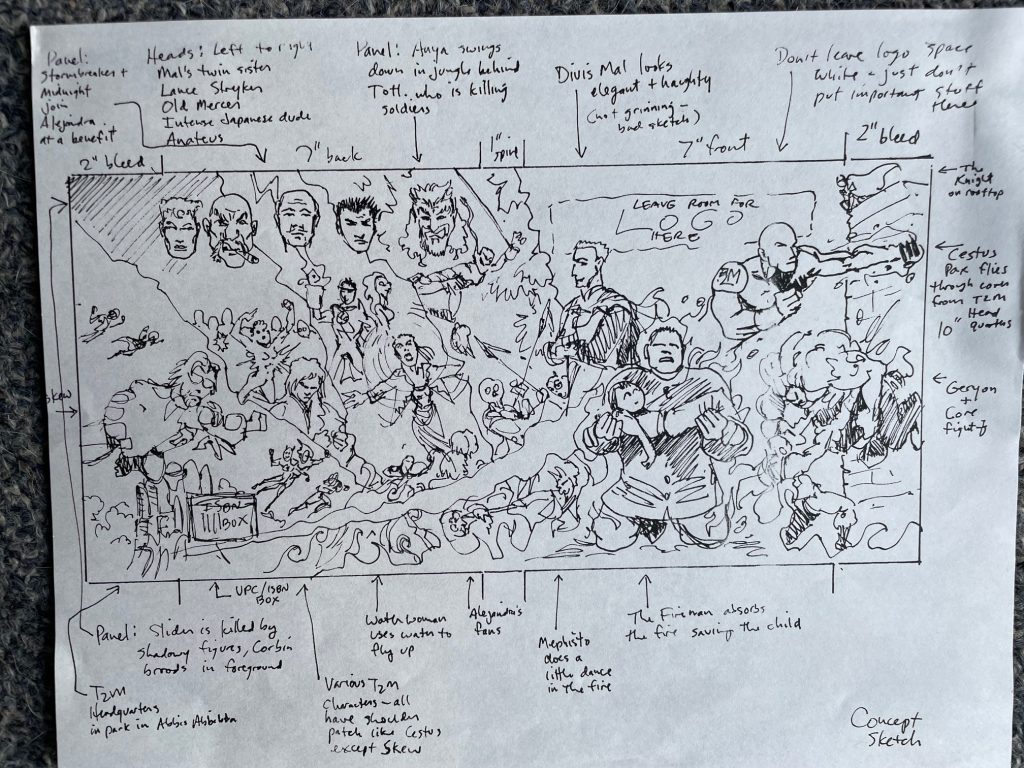 Panel:
Stormbreaker +
Midnight
join
Alejandra
at a benefit
Heads: Left to right
Mal's twin sister
Lance Stryker
Old Mercer
Intense Japanese dude
Anateus
Panel: swings
down in jungle behind
Totl.. who is killing
soldiers
Divis Mal looks
elegant + haughty
(not grinning –
bad sketch)
Don't leave logo space
white – just don't
put important stuff
there
2" bleed
7" back
1"
7" front
2" bleed
The
Knight
on rooftop
LEAVE ROOM FOR
LOGO
HERE
BM
Cestus
Pax flies
through cover
from T2M
Head
quarters
10"
Geryon
+
Core
fight
Skew
ISBN
BOX
UPC/ISBN
BOX
Panel: Slider is killed by
shadowy figures, Corbin
broods in foreground
T2M
Headquarters
in park in Addis
Various T2M
characters – all
have shoulder
patch like Cestus
except Skew
Water woman
uses water to
fly up
Alejandra's
fans
Mephisto
does a
little dance
in the fire
The Fireman absorbs
the fire saving the child
Concept
Sketch